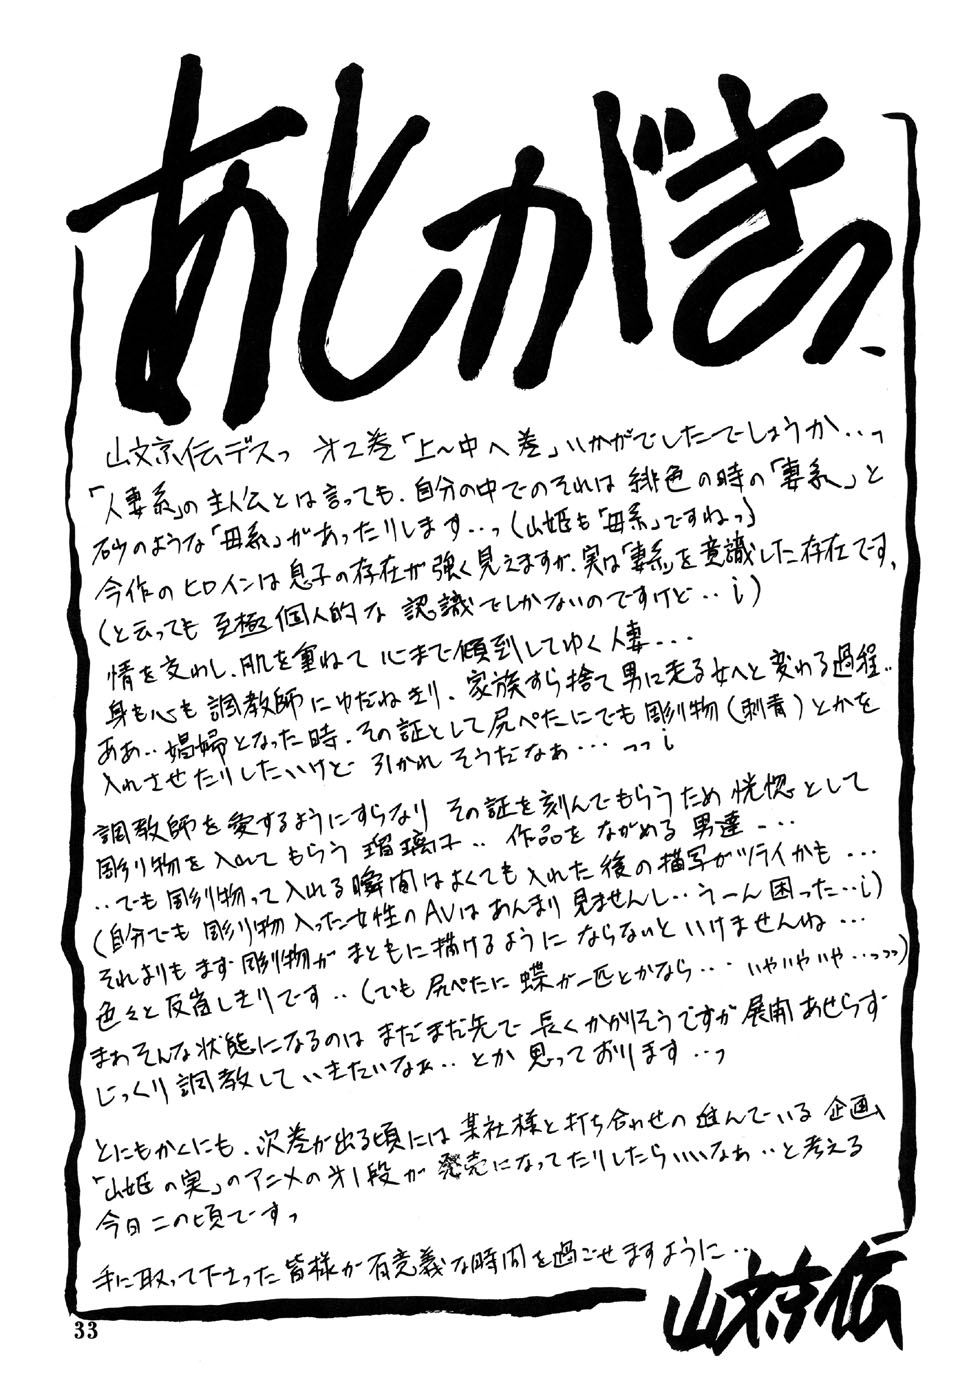 あとがきっ
山文京伝デスっ 才2巻「上〜中へ巻」いかがでしたでしょうか‥っ
「人妻系」の主人公とは言っても、自分の中でのそれは緋色の時の「妻系」と
砂のような「母系」があったりします‥っ(山姫も「母系」ですねっ)
今作のヒロインは息子の存在が強く見えますが、実は「妻系」を意識した存在です、
(と云っても至極個人的な認識でしかないのですけど‥i)
情を交わし、肌を重ねて心まで傾倒してゆく人妻‥‥
身も心も調教師にゆだねきり、家族すら捨て男に走る女へと変わる過程‥
ああ‥娼婦となった時、その証として尻ぺたにでも彫り物(刺青)とかを
入れさせたりしたいけど引かれそうだなぁ‥‥っっi
調教師を愛するようにすらなりその証を刻んでもらうため恍惚として
彫り物を入れてもらう瑠璃子‥作品をながめる男達‥‥
‥でも彫り物って入れる瞬間はよくても入れた後の描写がツライかも‥‥
(自分でも彫り物入った女性のAVはあんまり見ませんし‥うーん困った‥i)
それよりもまず彫り物がまともに描けるようにならないといけませんね‥‥
色々と反省しきりです‥(でも尻ぺたに蝶が一匹とかなら‥‥いやいやいや‥っっっ)
まぁそんな状態になるのはまだまだ先で長くかかりそうですが展開あせらず
じっくり調教していきたいなぁ‥とか思っております‥っ
とにもかくにも、次巻が出る頃には某社様と打ち合わせの進んでいる企画、
「山姫の実」のアニメの才1段が発売になってたりしたらいいなぁ‥と考える
今日この頃ですっ
手に取って下さった皆様が有意義な時間を過ごせますように‥
山文京伝
33